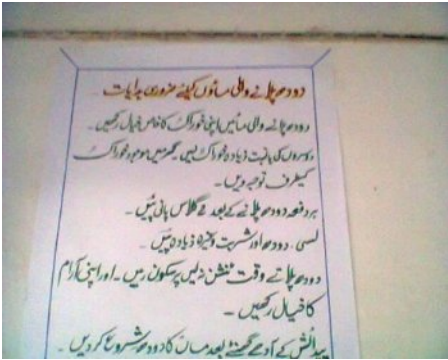 دودھ پلانے والی ماؤں کیلئے ضروری ہدایات
دودھ پلانے والی مائیں اپنی خوراک کا خاص خیال رکھیں ۔
دوسروں کی بانبت زیادہ خوراک لیں ۔ گھر میں موجود خوراک
کیطرف توجہ دیں ۔
ہر دفعہ دودھ پلانے کے بعد 2 گلاس پانی پئیں ۔
لسی ۔ دودھ اور شربت وغیرہ زیادہ پئیں ۔
دودھ پلاتے وقت ٹنشن نہ لیں پر سکون رہیں ۔ اور اپنی آرام
کا خیال رکھیں ۔
پیدائش کے آدھے گھنٹے بعد ماں کا دودھ شروع کر دیں ۔